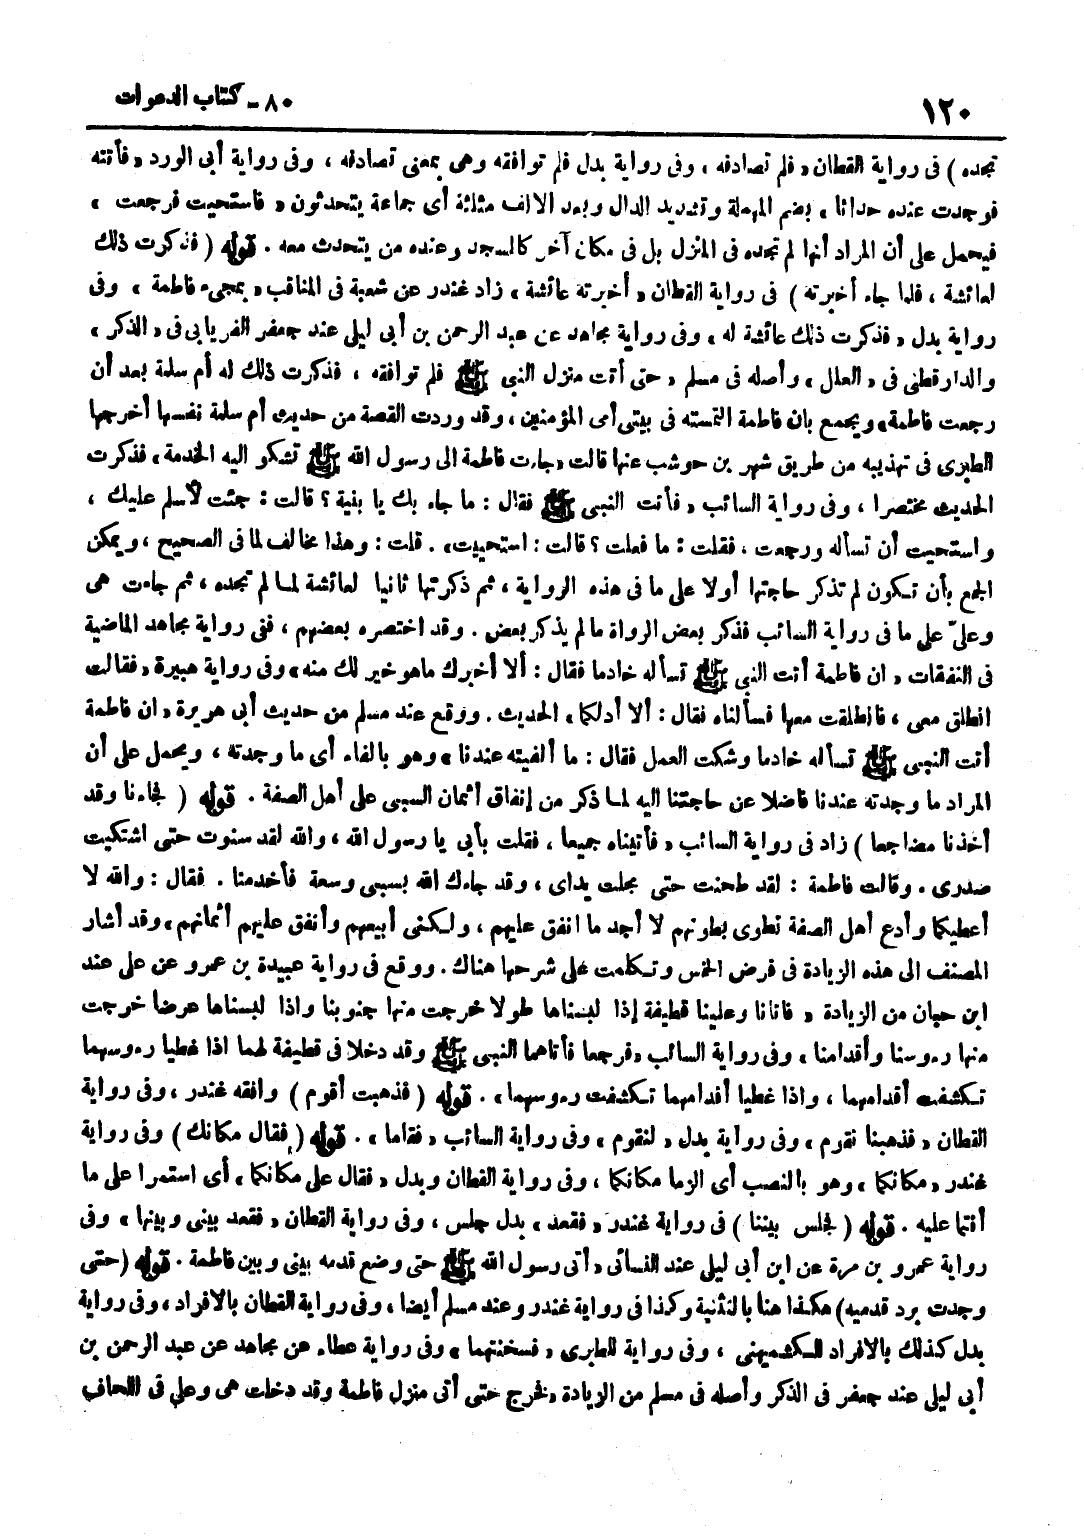 ١٢٠
٨٠ - كتاب الدعوات
تجده ) فى رواية القطان « فلم تصادفه ، وفى رواية بدل فلم توافقه وهى بمعنى تصادفه ، وفى رواية أبى الورد « فأتته
فوجدت عنده حداثا ، بضم المهملة وتشديد الدال وبعد الالف مثلثة أى جماعة يتحدثون « فاستحيت فرجعت ،
فيحمل على أن المراد أنها لم تجده فى المنزل بل فى مكان آخر كالمسجد وعنده من يتحدث معه . قوله ( فذكرت ذلك
لعائشة ، فلما جاء أخبرته ) فى رواية القطان « أخبرته عائشة » زاد غندر عن شعبة فى المناقب « بمجىء فاطمة » وفى
رواية بدل « فذكرت ذلك عائشة له » وفى رواية مجاهد عن عبد الرحمن بن أبى ليلى عند جعفر الفريابى فى « الذكر »
والدارقطنى فى « العلل » وأصله فى مسلم « حتى أتت منزل النبى ﷺ فلم توافقه ، فذكرت ذلك له أم سلمة بعد أن
رجعت فاطمة » ويجمع بان فاطمة التمسته فى بيتى أمى المؤمنين ، وقد وردت القصة من حديث أم سلمة نفسها أخرجها
الطبرى فى تهذيبه من طريق شهر بن حوشب عنها قالت « جاءت فاطمة الى رسول الله ﷺ تشكو اليه الخدمة » فذكرت
الحديث مختصرا ، وفى رواية السائب « فأتت النبى ﷺ فقال : ما جاء بك يا بنية ؟ قالت : جئت لأسلم عليك ،
واستحيت أن تسأله ورجعت ، فقلت : ما فعلت ؟ قالت : استحييت » . قلت : وهذا مخالف لما فى الصحيح ، ويمكن
الجمع بأن تكون لم تذكر حاجتها أولا على ما فى هذه الرواية ، ثم ذكرتها ثانيا لعائشة لما لم تجده ، ثم جاءت هى
وعلىّ على ما فى رواية السائب فذكر بعض الرواة مالم يذكر بعض . وقد اختصره بعضهم ، ففى رواية مجاهد الماضية
فى النفقات « ان فاطمة أتت النبى ﷺ تسأله خادما فقال : ألا أخبرك ماهو خير لك منه » وفى رواية هبيرة « فقالت
انطلق معى ، فانطلقت معها فسألناه فقال : ألا أدلكما » الحديث . ووقع عند مسلم من حديث أبى هريرة « ان فاطمة
أتت النبى ﷺ تسأله خادما وشكت العمل فقال : ما ألفيته عندنا » وهو بالفاء أى ما وجدته ، ويحمل على أن
المراد ما وجدته عندنا فاضلا عن حاجتنا اليه لما ذكر من إنفاق أثمان السبى على أهل الصفة . قوله ( فجاءنا وقد
أخذنا مضاجعنا ) زاد فى رواية السائب « فأتيناه جميعا ، فقلت بأبى يا رسول الله ، والله لقد سنوت حتى اشتكيت
صدرى . وقالت فاطمة : لقد طحنت حتى مجلت يداى ، وقد جاءك الله بسبى وسعة فأخدمنا . فقال : والله لا
أعطيكما وأدع أهل الصفة تطوى بطونهم لا أجد ما انفق عليهم ، ولكنى أبيعهم وأنفق عليهم أثمانهم » وقد أشار
المصنف الى هذه الزيادة فى فرض الخمس وتكلمت على شرحها هناك . ووقع فى رواية عبيدة بن عمرو عن على عند
ابن حبان من الزيادة « فاتانا وعلينا قطيفة إذا لبسناها طولا خرجت منها جنوبنا واذا لبسناها عرضا خرجت
منها رءوسنا وأقدامنا » وفى رواية السائب « فرجعا فأتاهما النبى ﷺ وقد دخلا فى قطيفة لهما اذا غطيا رءوسهما
تكشفت أقدامهما ، واذا غطيا أقدامهما تكشفت رءوسهما » . قوله ( فذهبت أقوم ) وافقه غندر ، وفى رواية
القطان « فذهبنا نقوم » وفى رواية بدل « لنقوم » وفى رواية السائب « فقاما » . قوله ( فقال مكانك ) وفى رواية
غندر « مكانكما » وهو بالنصب أى الزما مكانكما ، وفى رواية القطان وبدل « فقال على مكانكما » أى استمرا على ما
أنتما عليه . قوله ( فجلس بيننا ) فى رواية غندر « فقعد » بدل جلس ، وفى رواية القطان « فقعد بينى وبينها » وفى
رواية عمرو بن مرة عن ابن أبى ليلى عند النسائى « أتى رسول الله ﷺ حتى وضع قدمه بينى وبين فاطمة . قوله ( حتى
وجدت برد قدميه ) هكذا هنا بالتثنية وكذا فى رواية غندر وعند مسلم أيضا ، وفى رواية القطان بالافراد ، وفى رواية
بدل كذلك بالافراد للكشميهنى ، وفى رواية للطبرى « فسخنتهما » وفى رواية عطاء عن مجاهد عن عبد الرحمن بن
أبى ليلى عند جعفر فى الذكر وأصله فى مسلم من الزيادة « فخرج حتى أتى منزل فاطمة وقد دخلت هى وعلى فى اللحاف